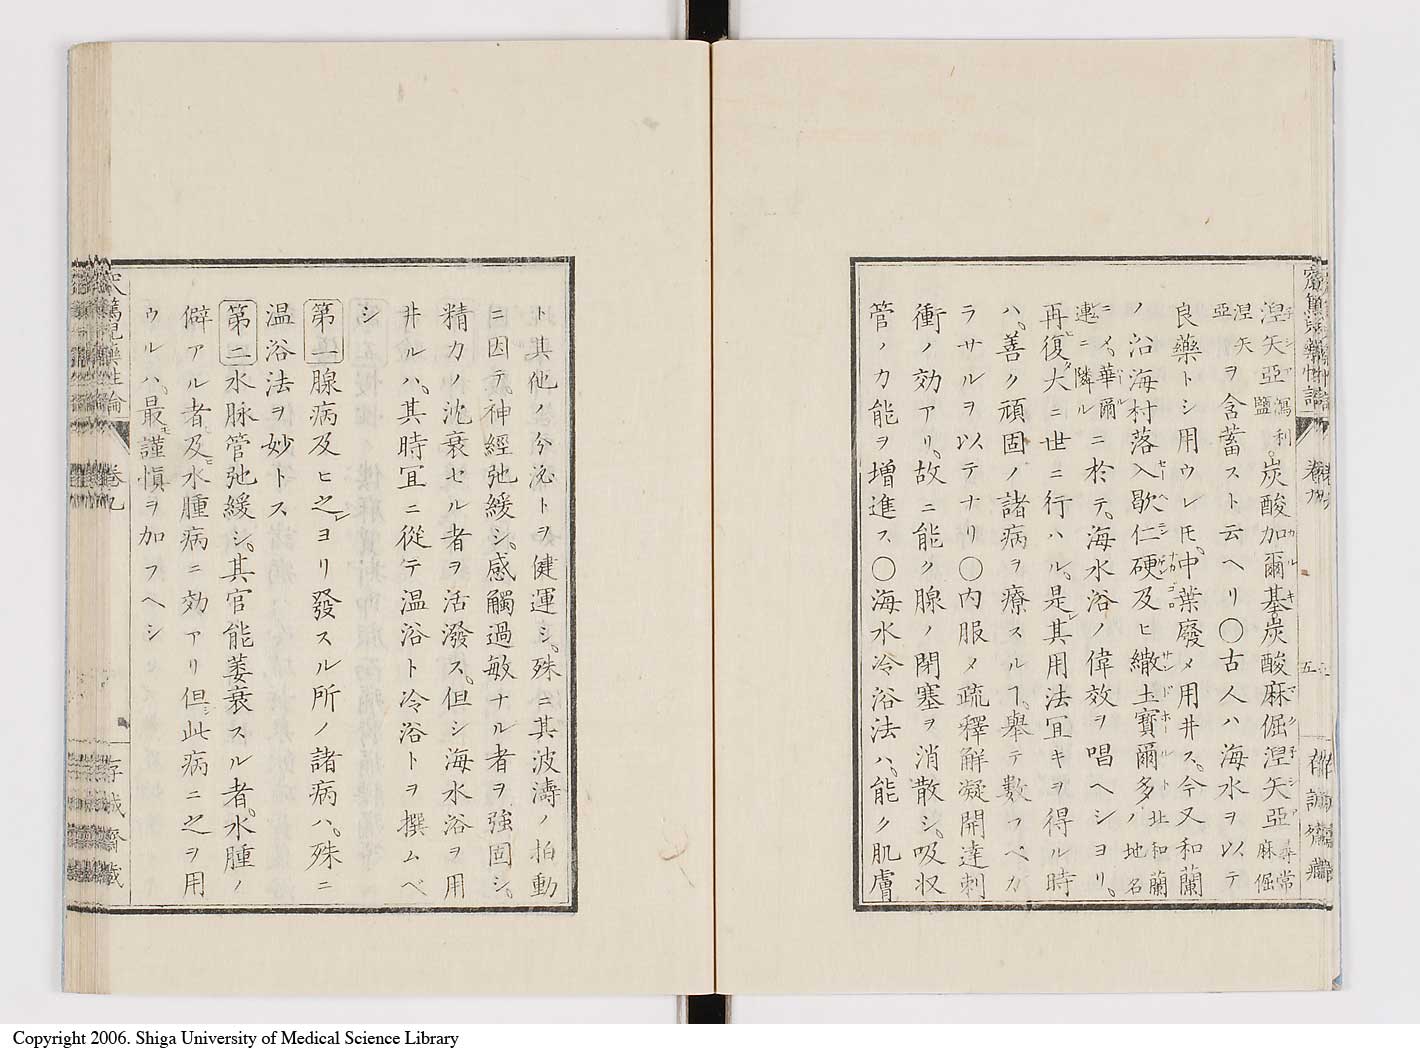 涅矢亞瀉利鹽。炭酸加爾基炭酸麻倔涅矢亞尋常麻倔
涅矢亞ヲ含蓄スト云ヘリ〇古人ハ海水ヲ以テ
良藥トシ用ウレ𪜈、中葉廢メ用井ス。今又和蘭
ノ沿海村落入歇仁硬及ヒ繖土寶爾多北和蘭ノ地名
ニイ、華爾連ニ隣ルニ於テ、海水浴ノ偉效ヲ唱ヘショリ。
再復大ニ世ニ行ハル。是其用法冝キヲ得ル時
ハ、善ク頑固ノ諸病ヲ療スルヿ、舉テ數フベカ
ラサルヲ以テナリ〇內服メ疏釋解凝開達刺
衝ノ効アリ。故ニ能ク腺ノ閉塞ヲ消散シ。吸収
管ノカ能ヲ増進ス〇海水冷浴法ハ、能ク肌膚
ト其他ノ分泌トヲ健運シ。殊ニ其波濤ノ拍動
ニ因テ神經弛緩シ。感觸過敏ナル者ヲ強固シ。
精力ノ沈衰セル者ヲ活潑ス。但シ海水浴ヲ用
井ルハ、其時冝ニ從テ溫浴ト冷浴トヲ撰ムベ
シ
第一腺病及ヒ之ヨリ發スル所ノ諸病ハ、殊ニ
温浴法ヲ妙トス
第二水脉管弛緩シ。其官能萎衰スル者。水腫ノ
僻アル者及水腫病ニ効アリ但此病ニ之ヲ用
ウルハ、最謹愼ヲ加フヘシ
卷九
存誠齋藏
Copyright 2006. Shiga University of Medical Science Library